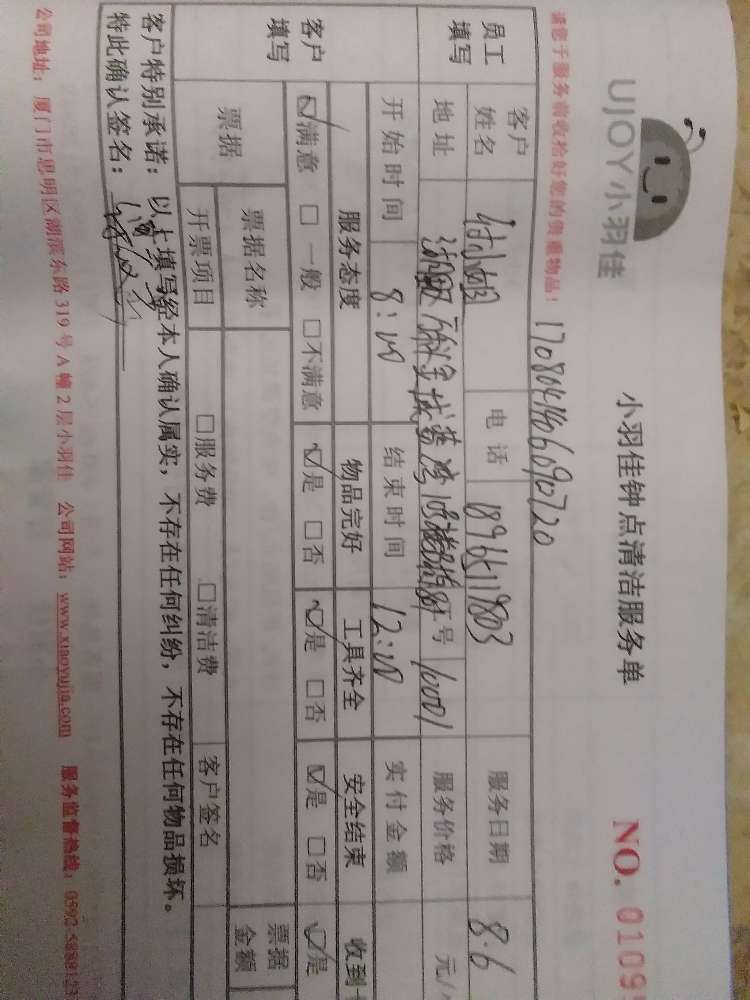 UJOY小羽佳
小羽佳钟点清洁服务单
NO. 0109
请您于服务前收拾好您的贵重物品！
1708041406090720
员工填写
客户姓名
付小姐
电话
服务日期
8.6
地址
工号
10001
服务价格
元/
开始时间
8:00
结束时间
12:00
实付金额
客户填写
服务态度
物品完好
工具齐全
安全结束
收到
☑满意 □一般 □不满意
☑是 □否
☑是 □否
☑是 □否
☑是
票据
票据名称
票据金额
开票项目
□服务费 □清洁费
客户签名
客户特别承诺：以上填写经本人确认属实，不存在任何纠纷，不存在任何物品损坏。
特此确认签名：
公司地址：厦门市思明区湖滨东路 319 号 A 幢 2 层小羽佳 公司网站：www.xiaoyujia.com 服务监督热线：0592-5888123